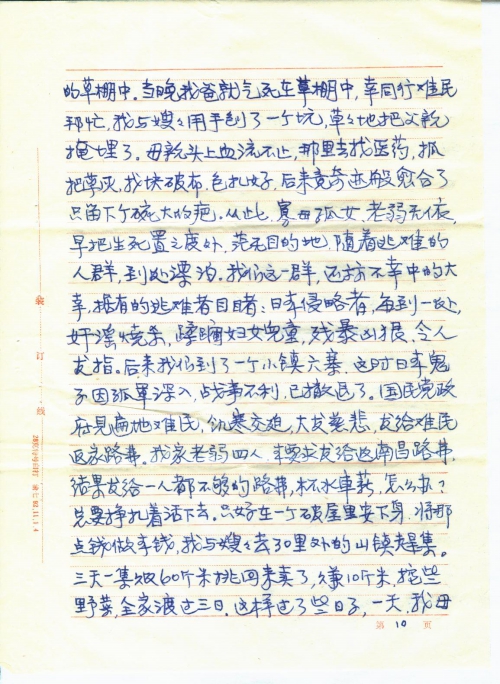 的草棚中。当晚我爸就气死在草棚中，幸同行难民
帮忙，我与嫂々用手刨了一个坑，草々地把父亲
掩埋了。母亲头上血流不止，那里去找医药，抓
把草灰，找块破布，包扎好，后来竟奇迹般愈合了
只留下个碗大的疤。从此，寡母孤女，老弱无依，
早把生死置之度外，茫无目的地，随着逃难的
人群，到处漂泊。我们这一群，还坊不幸中的大
幸，据有的逃难者目睹：日本侵略者，每到一处，
奸淫烧杀，蹂躏妇女儿童，残暴凶狠，令人
发指。后来我们到了一个小镇六寨，这时日本鬼
子因孤军深入，战事不利，已撤退了。国民党政
府见遍地难民，饥寒交迫，大发慈悲，发给难民
返家路费。我家老弱四人，要求发给返南昌路费，
结果发给一人都不够的路费，杯水车薪，怎么办？
总要挣扎着活下去。只好在一个破屋里安下身，将那
点钱做本钱，我与嫂々去30里外的山镇赶集。
三天一集，60斤米挑回来卖了，赚10斤米，挖些
野菜，全家渡过三日。这样过了些日子，一天，我母
第 10 页
装 订 线